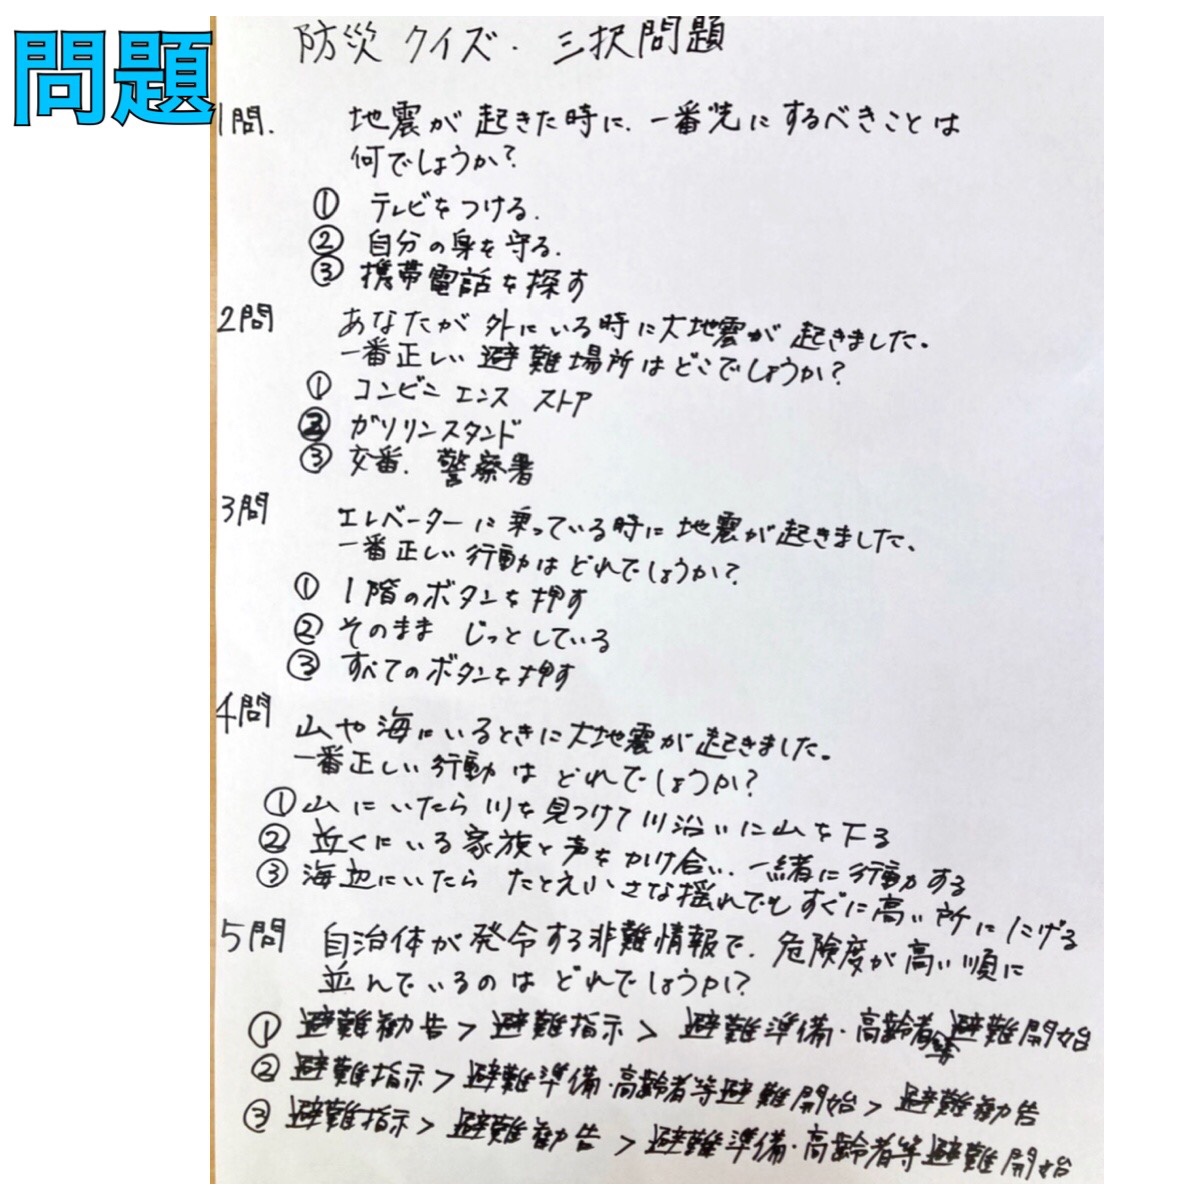 問題
防災クイズ・三択問題
1問. 地震が起きた時に、一番先にするべきことは
何でしょうか?
① テレビをつける.
② 自分の身を守る.
③ 携帯電話を探す
2問 あなたが外にいる時に大地震が起きました。
一番正しい避難場所はどこでしょうか?
① コンビニエンスストア
② ガソリンスタンド
③ 交番. 警察署
3問 エレベーターに乗っている時に地震が起きました、
一番正しい行動はどれでしょうか?
① 1階のボタンを押す
② そのままじっとしている
③ すべてのボタンを押す
4問 山や海にいるときに大地震が起きました。
一番正しい行動はどれでしょうか?
① 山にいたら川を見つけて川沿いに山を下る
② 近くにいる家族と声をかけ合い、一緒に行動する
③ 海辺にいたらたとえ小さな揺れでもすぐに高い所ににげる
5問 自治体が発令する非難情報で、危険度が高い順に
並んでいるのはどれでしょうか?
① 避難勧告>避難指示>避難準備・高齢者等避難開始
② 避難指示>避難準備・高齢者等避難開始>避難勧告
③ 避難指示>避難勧告>避難準備・高齢者等避難開始